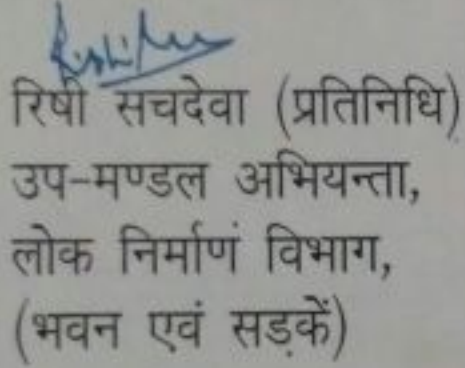 रिषी सचदेवा (प्रतिनिधि)
उप-मण्डल अभियन्ता,
लोक निर्माणं विभाग,
(भवन एवं सड़कें)